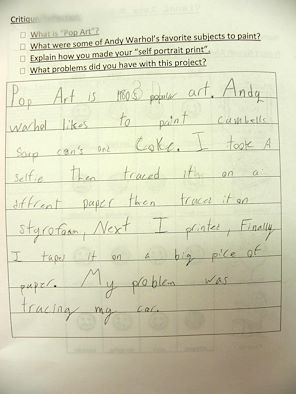 Critique
What is "Pop Art"?
What were some of Andy Warhol's favorite subjects to paint?
Explain how you made your "self portrait print".
What problems did you have with this project?
Pop Art is popular art. Andy
warhol likes to paint cambells
Soup can's and Coke. I took A
selfie then traced it on a
diffrent paper then traced it on
styrofoam, Next I printed, Finally
I taped it on a big pice of
paper. My problem was
tracing my ear.